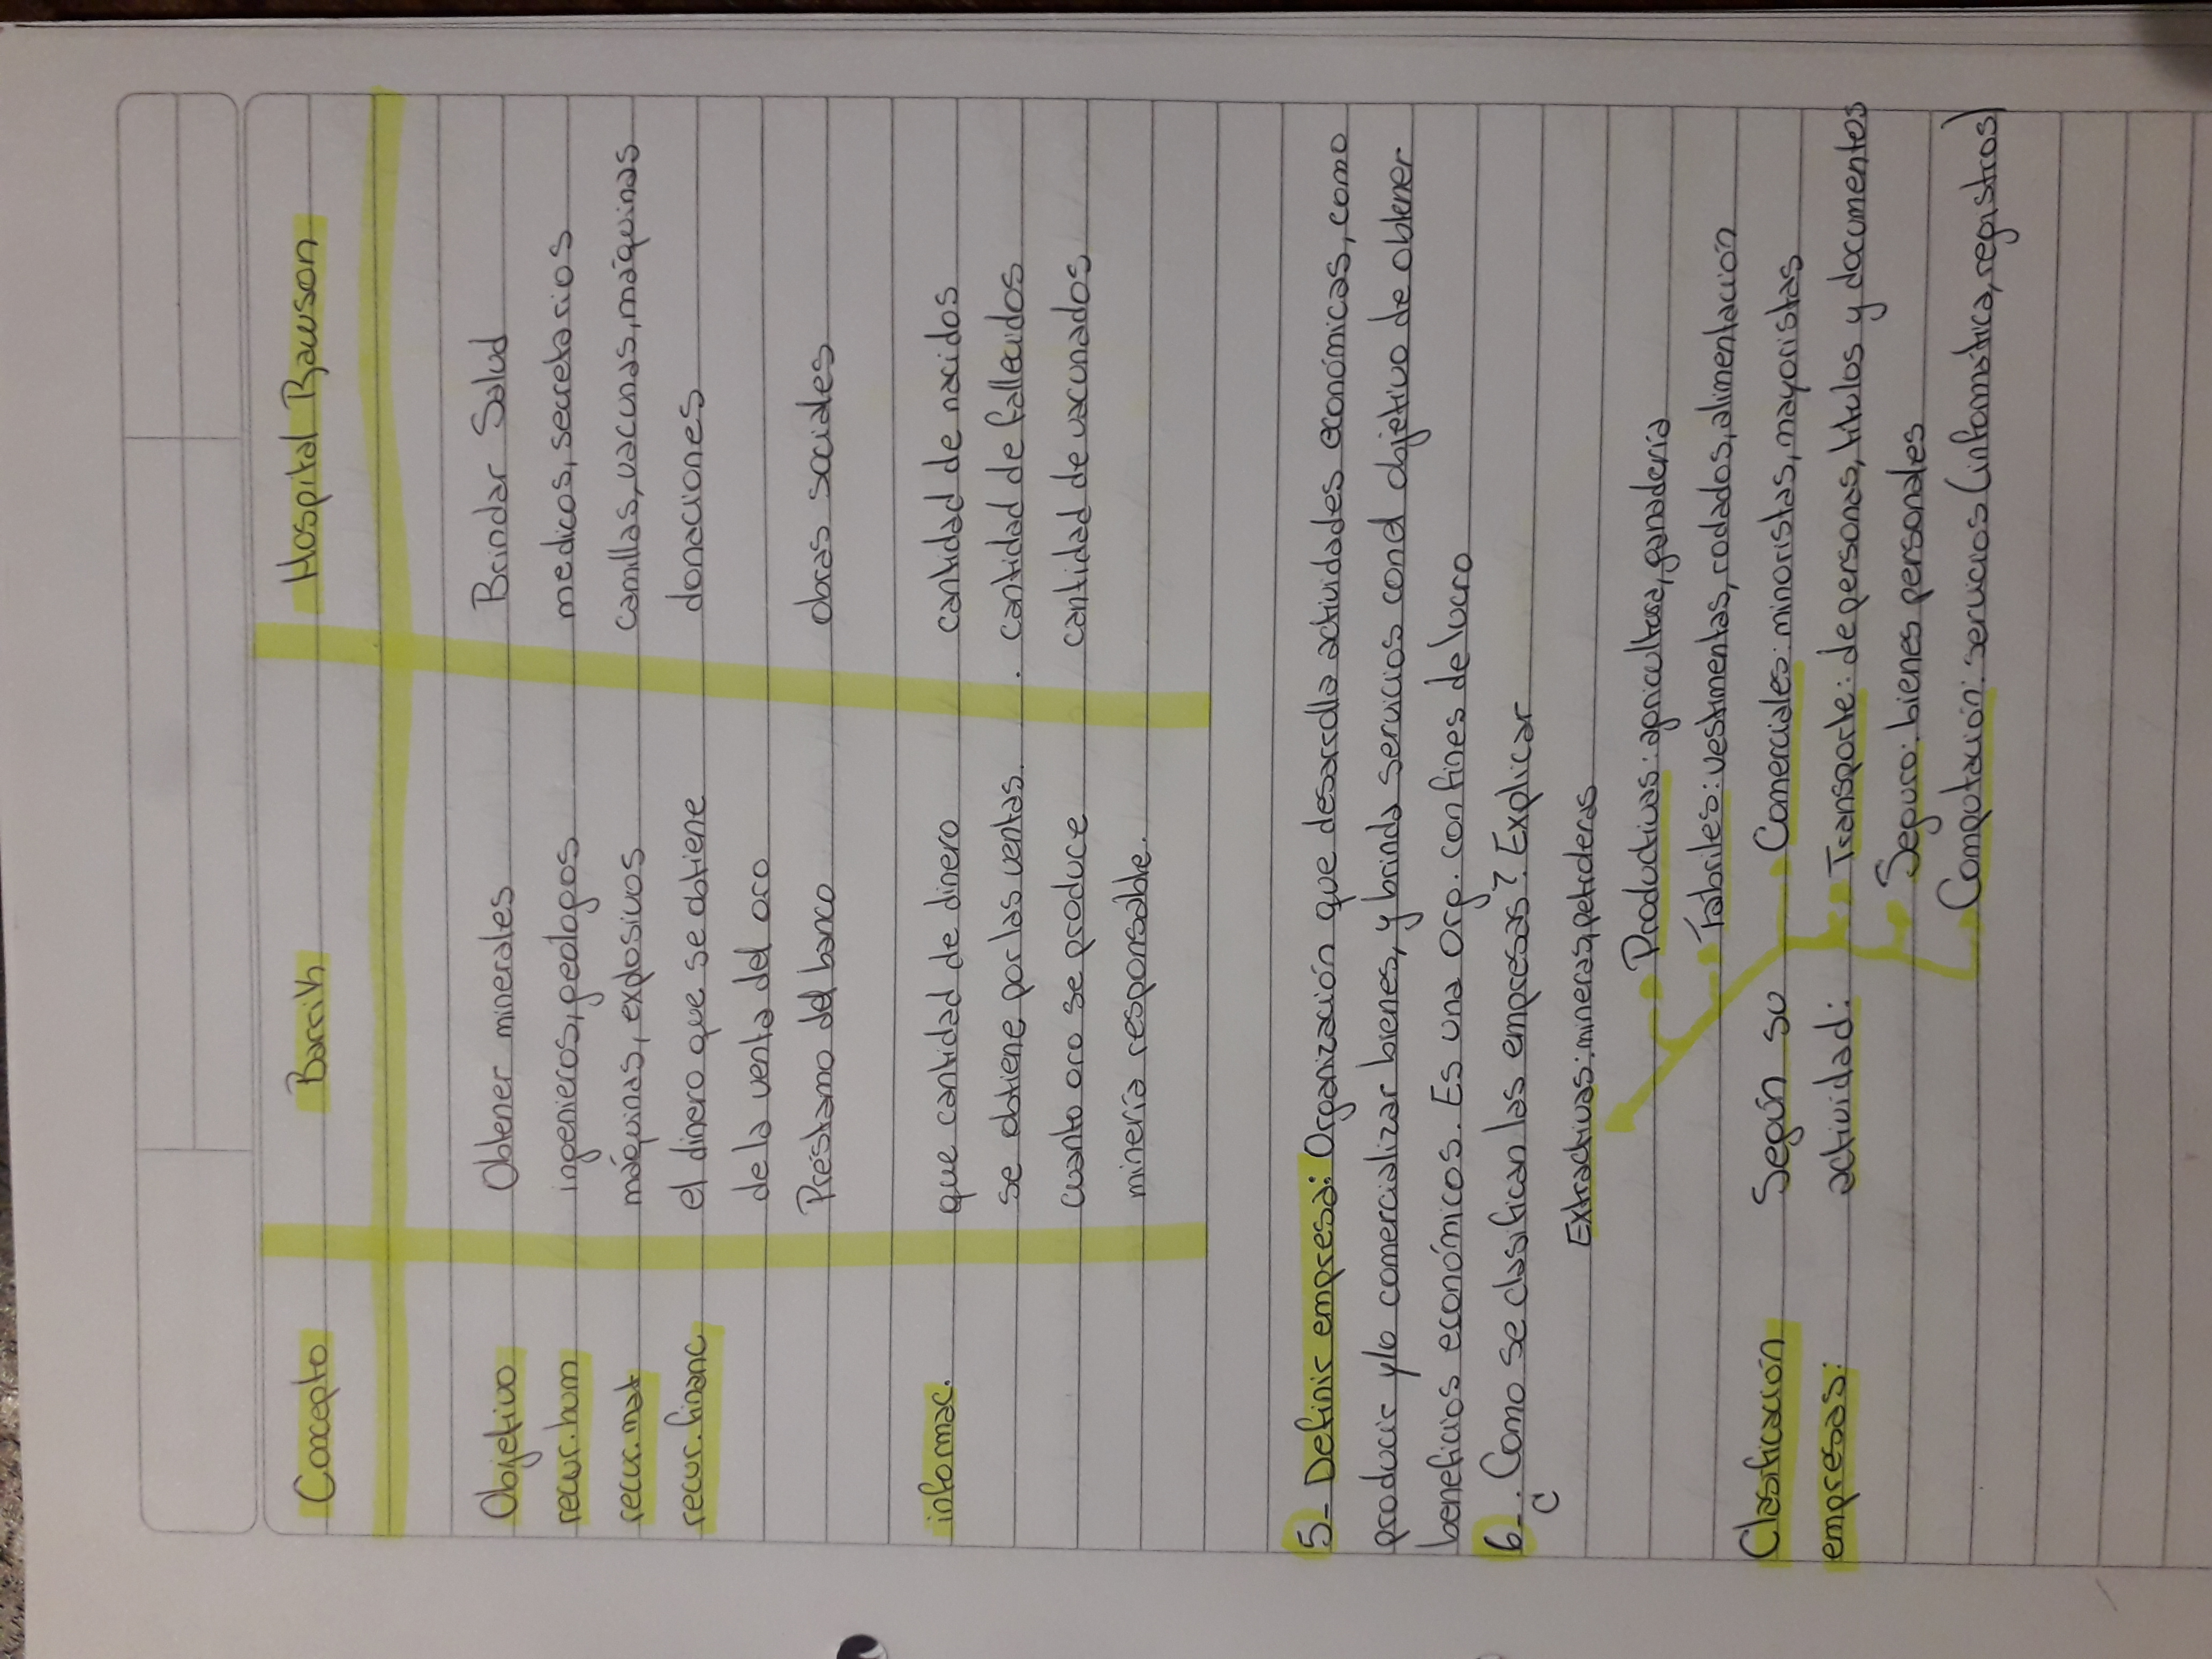 Concepto Barrik Hospital Rawson
Objetivo Obtener minerales Brindar Salud
recur.hum ingenieros, geologos medicos, secretarios
recur.mat máquinas, explosivos camillas, vacunas, máquinas
recur.financ el dinero que se obtiene donaciones
de la venta del oro
Préstamo del banco obras sociales
informac. que cantidad de dinero cantidad de nacidos
se obtiene por las ventas. . cantidad de fallecidos
cuanto oro se produce cantidad de vacunados
minería responsable.
5- Definir empresa: Organización que desarrolla actividades económicas, como
producir y/o comercializar bienes, y brinda servicios con el objetivo de obtener
beneficios económicos. Es una org. con fines de lucro
6-. Como se clasifican las empresas?. Explicar
C
Extractivas: mineras, petroleras
Productivas: agricultura, ganadería
Fabriles: vestimentas, rodados, alimentación
Clasificación Según su Comerciales: minoristas, mayoristas
empresas: actividad: Transporte: de personas, titulos y documentos
Seguro: bienes personales
Computación: servicios (informática, registros)